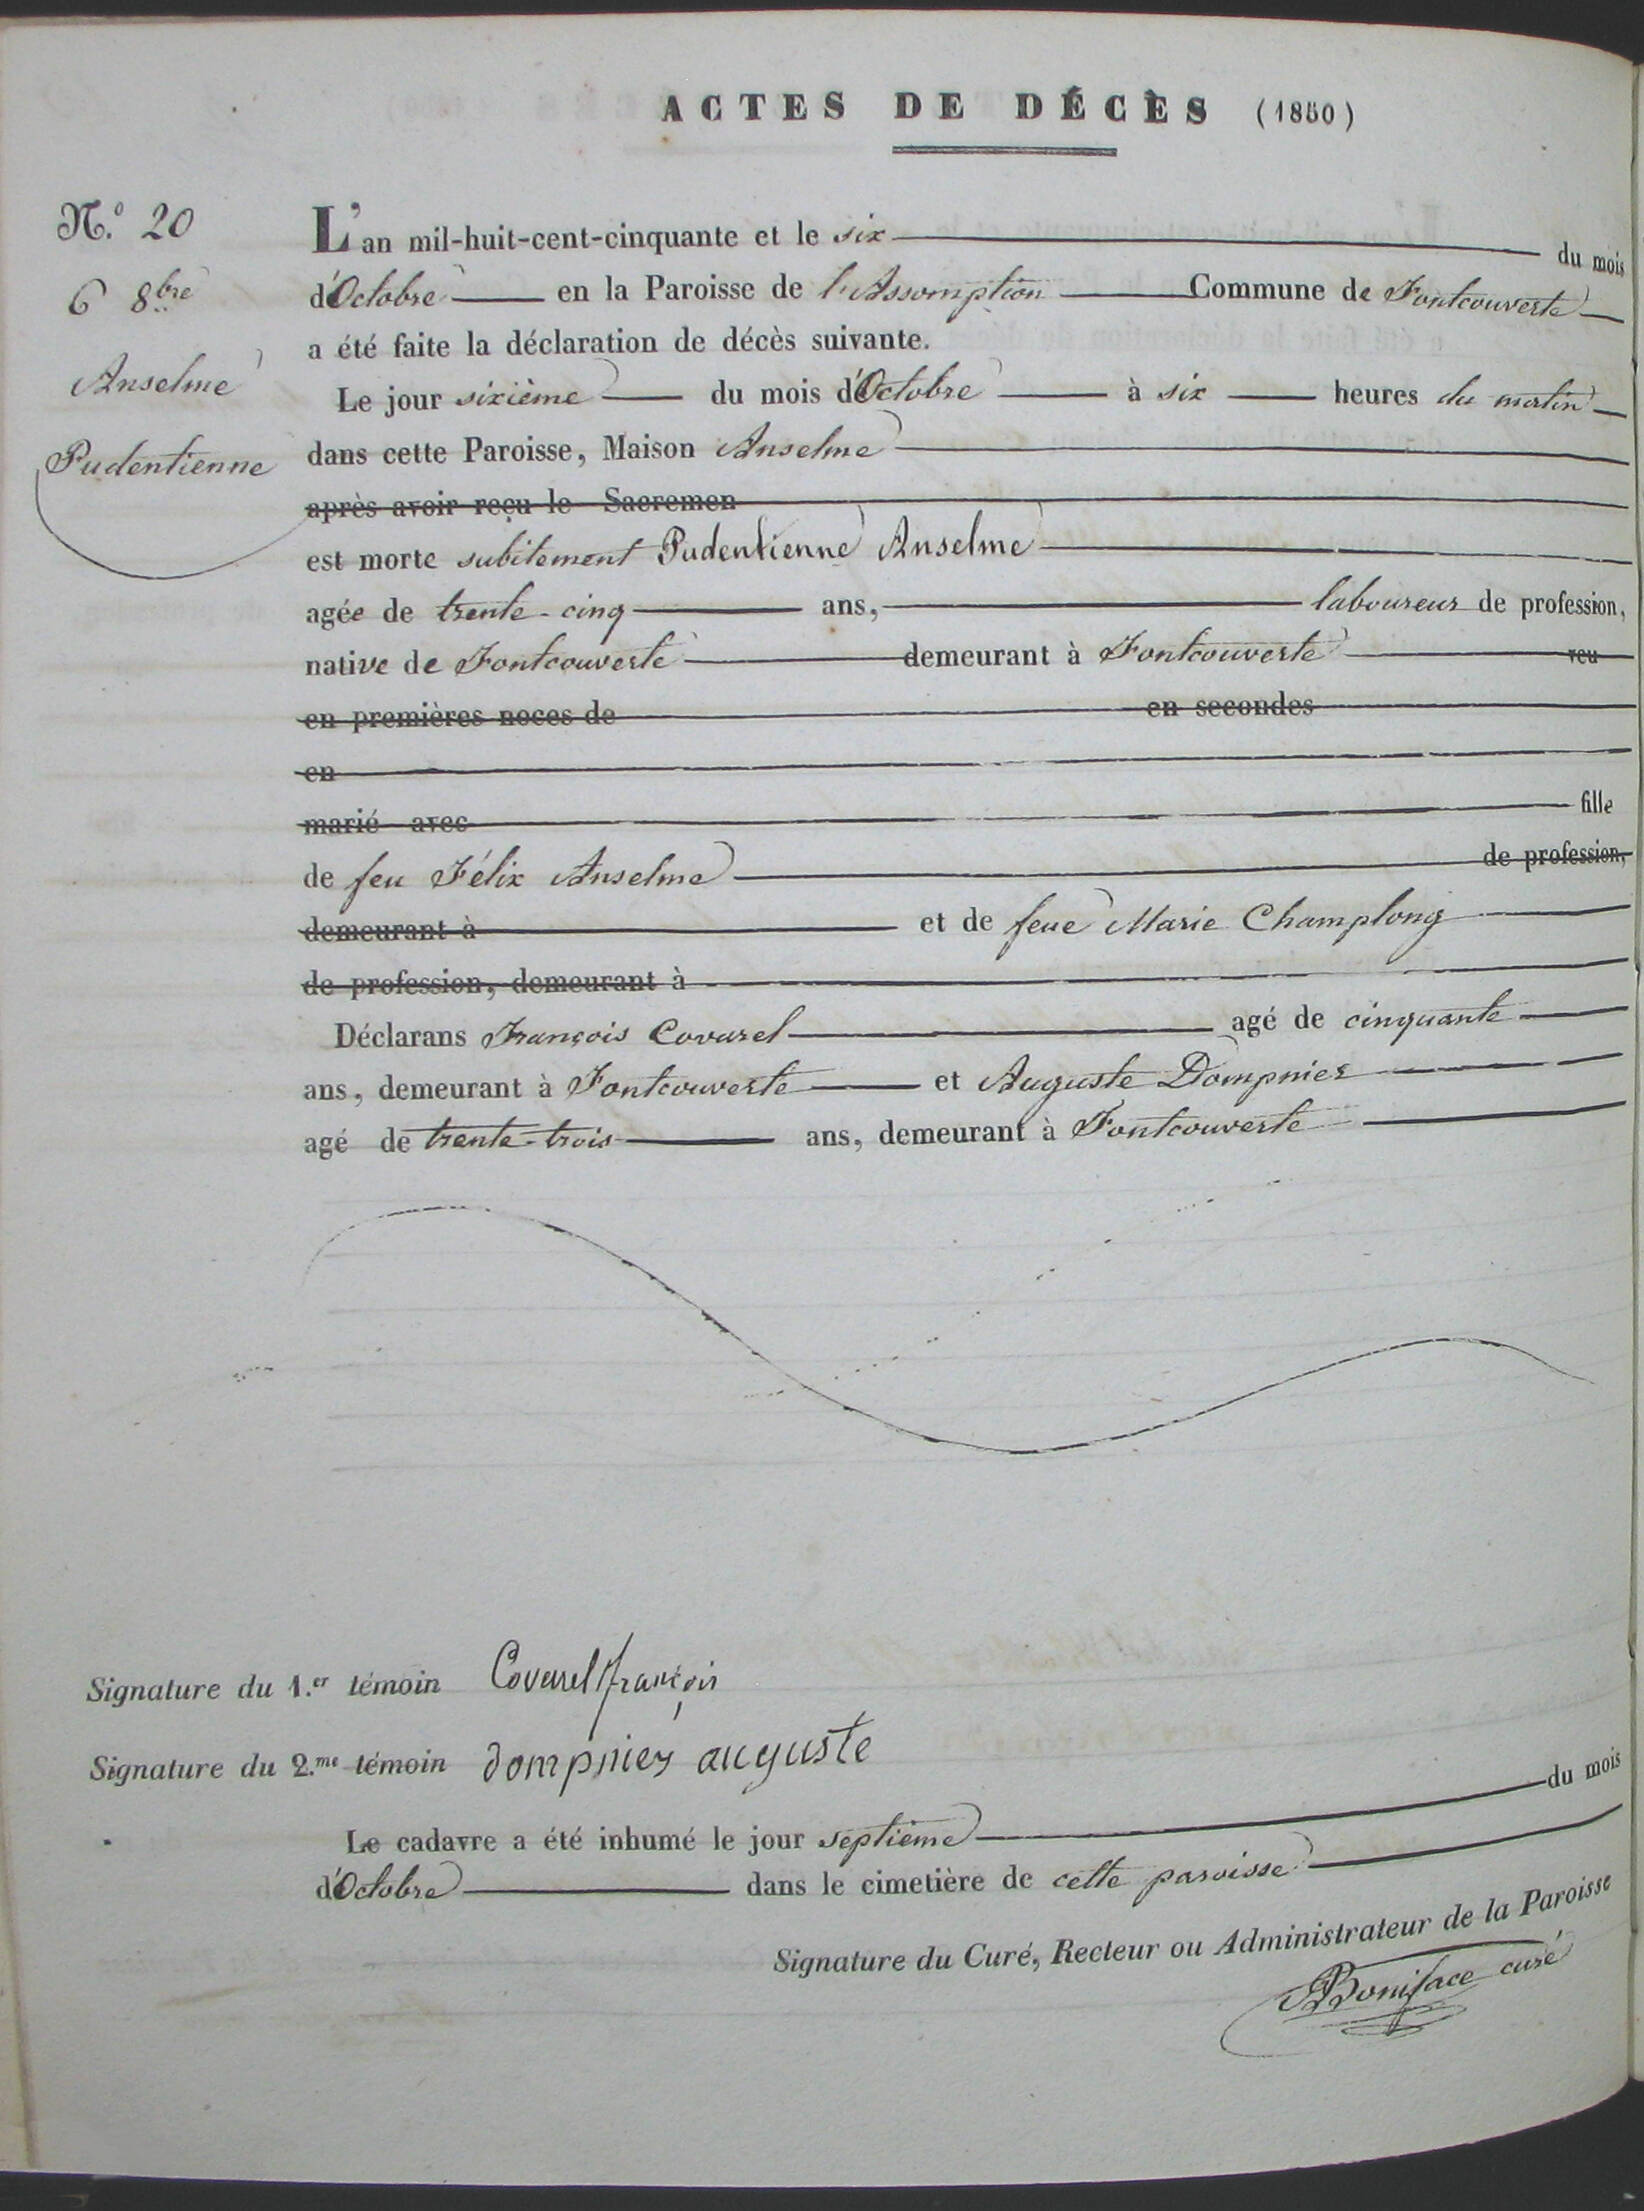 ACTES DE DÉCÈS (1850)
N.º 20
6 8.bre
Anselme
Pudentienne
L'an mil-huit-cent-cinquante et le six du mois
d'Octobre en la Paroisse de l'Assomption Commune de Fontcouverte
a été faite la déclaration de décès suivante.
Le jour sixième du mois d'Octobre à six heures du matin
dans cette Paroisse, Maison Anselme
après avoir reçu le Sacremen
est morte subitement Pudentienne Anselme
agée de trente-cinq ans, laboureur de profession,
native de Fontcouverte demeurant à Fontcouverte veu
en premières noces de en secondes
en
marié avec fille
de feu Félix Anselme de profession,
demeurant à et de feue Marie Champlong
de profession, demeurant à
Déclarans François Covarel agé de cinquante
ans, demeurant à Fontcouverte et Auguste Dompnier
agé de trente-trois ans, demeurant à Fontcouverte
Signature du 1.er témoin Covarel françois
Signature du 2.me témoin dompnier auguste
Le cadavre a été inhumé le jour septième du mois
d'Octobre dans le cimetière de cette paroisse
Signature du Curé, Recteur ou Administrateur de la Paroisse
Boniface curé